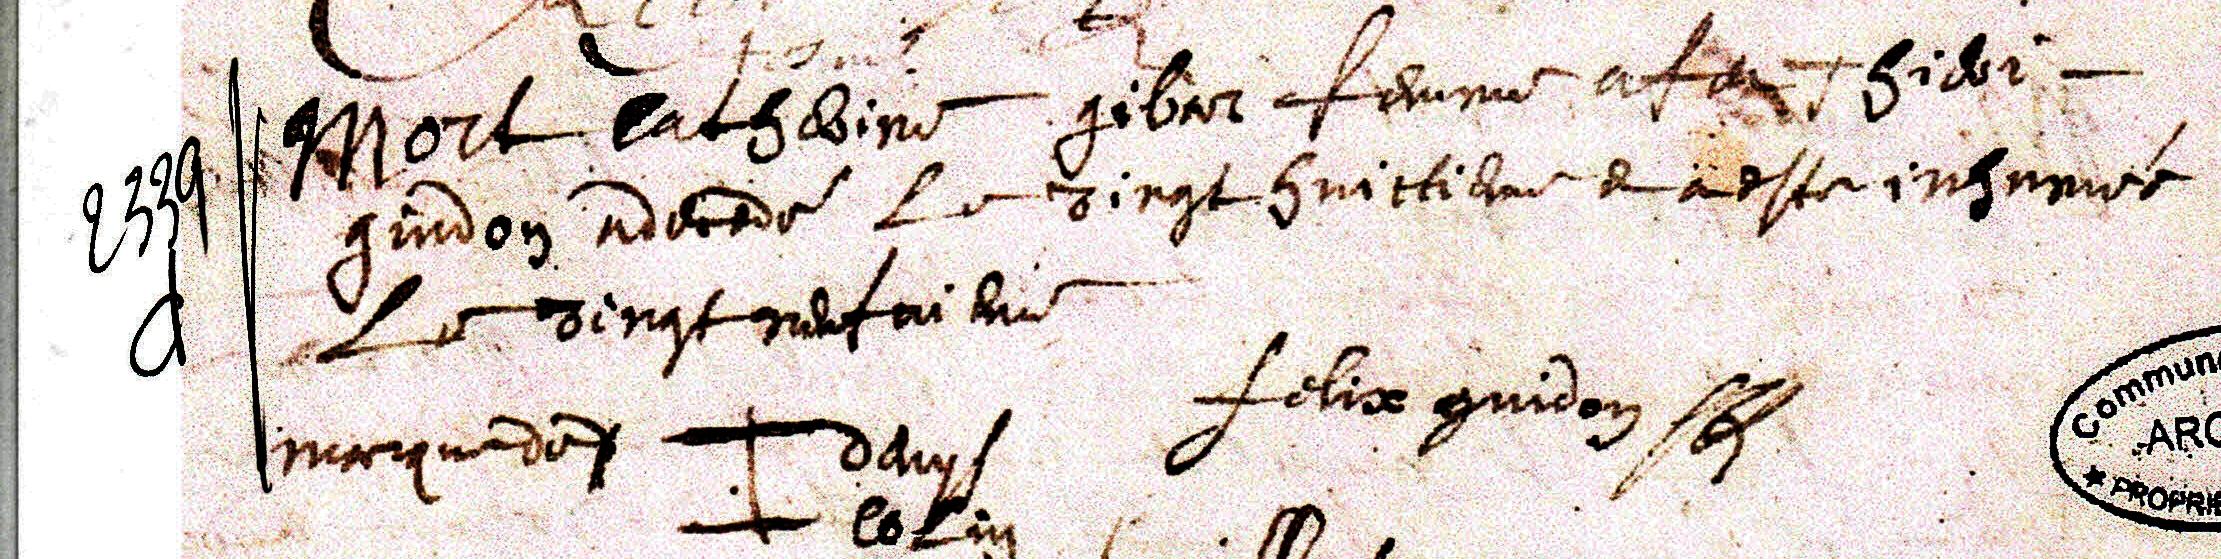 2339
d
Mort Catherine giber femme a feu Thieri
guidon decede Le vingt huictieme & a este inhumée
Le vingt neufvieme
felix guidon
marque de denys
Colin
Commun
ARC
PROPRIE